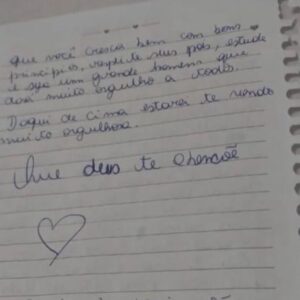 que você cresça bem com bons
princípios, respeite seus pais, estude
e seja um grande homem que
dará muito orgulho a todos.
Daqui de cima estarei te vendo
muito orgulhosa.
Que deus te abençoe